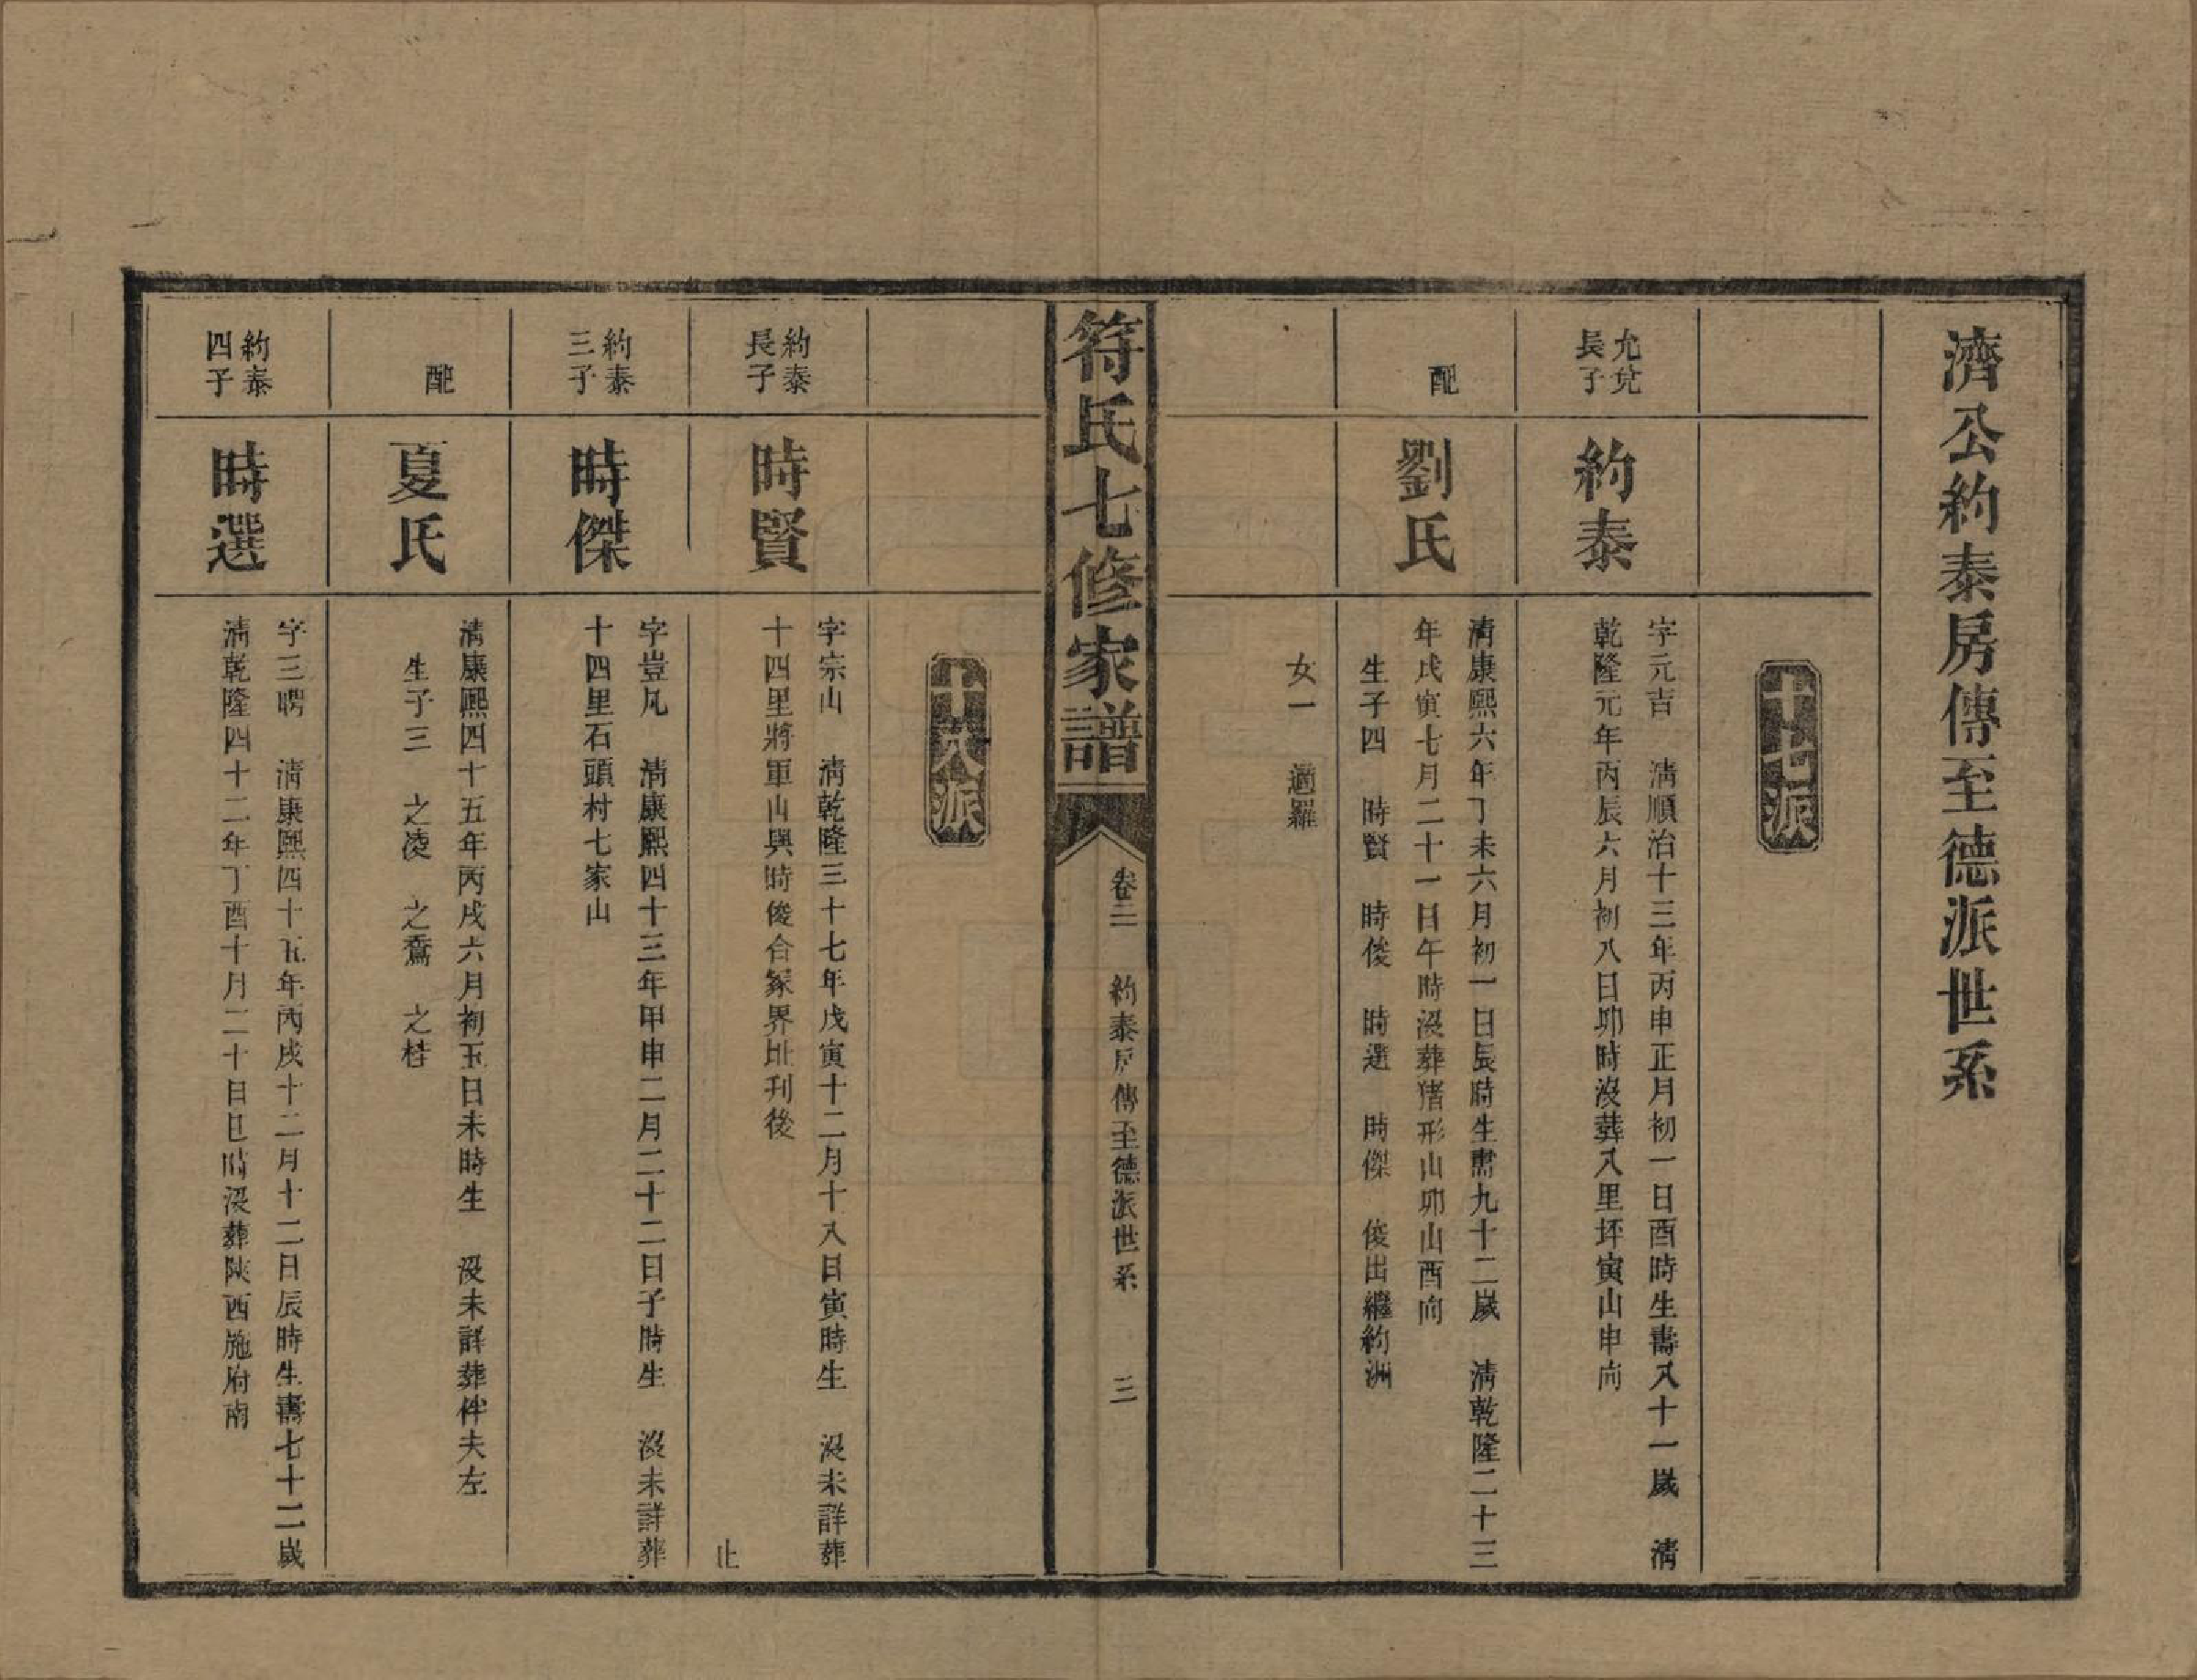 濟公約泰房傳至德派世系
十七派
允兌
長子
約泰
字元吉　清順治十三年丙申正月初一日酉時生壽八十一歲　清
乾隆元年丙辰六月初八日卯時沒葬八里坪寅山申向
配
劉氏
清康熙六年丁未六月初一日辰時生壽九十二歲　清乾隆二十三
年戊寅七月二十一日午時沒葬猪形山卯山酉向
生子四　時賢　時俊　時選　時傑　俊出繼約洲
女一　適羅
符氏七修家譜
卷二　約泰房傳至德派世系　三
十八派
約泰
長子
時賢
字宗山　清乾隆三十七年戊寅十二月十八日寅時生　沒未詳葬
十四里將軍山與時俊合冢界址刊後
止
約泰
三子
時傑
字豈凡　清康熙四十三年甲申二月二十二日子時生　沒未詳葬
十四里石頭村七家山
配
夏氏
清康熙四十五年丙戌六月初五日未時生　沒未詳葬伴夫左
生子三　之凌　之鴌　之桂
約泰
四子
時選
字三聘　清康熙四十五年丙戌十二月十二日辰時生壽七十二歲
清乾隆四十二年丁酉十月二十日巳時沒葬陝西施府南